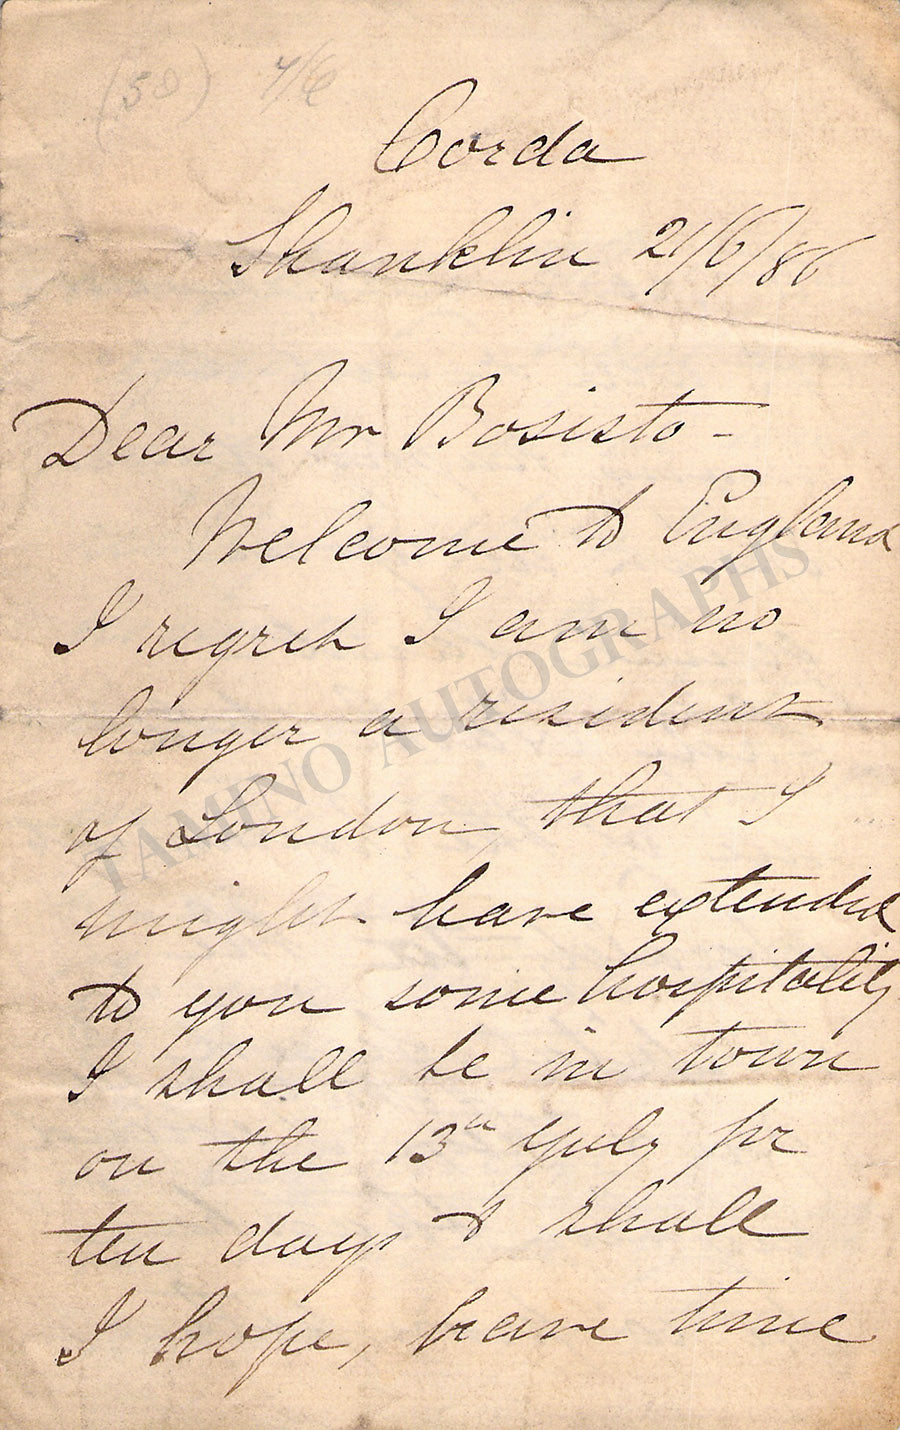 (58) 7/6
Corda
Shanklin 21/6/86
Dear Mr Bosisto -
Welcome to England
I regret I am no
longer a resident
of London, that I
might have extended
to you some hospitality
I shall be in town
on the 13th July for
ten days & shall
I hope, have time
TAMINO AUTOGRAPHS